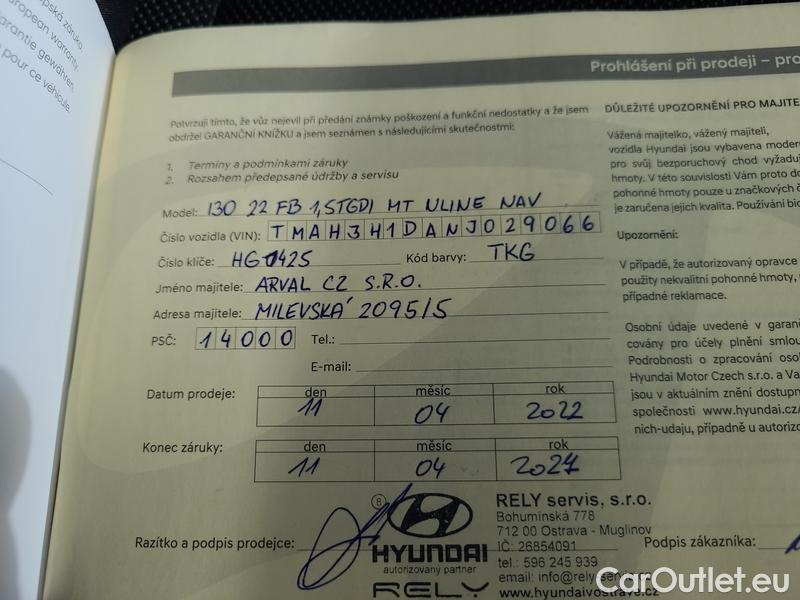 opská záruka.
uropean warranty.
arantie gewähren.
pour ce véhicule.
Prohlášení při prodeji – pro
Potvrzuji tímto, že vůz nejevil při předání známky poškození a funkční nedostatky a že jsem
obdržel GARANČNÍ KNÍŽKU a jsem seznámen s následujícími skutečnostmi:
1. Termíny a podmínkami záruky
2. Rozsahem předepsané údržby a servisu
Model: I30 22 FB 1,5TGDI MT NLINE NAV
Číslo vozidla (VIN): TMAH3H1DANJ029066
Číslo klíče: HG1425 Kód barvy: TKG
Jméno majitele: ARVAL CZ S.R.O.
Adresa majitele: MILEVSKÁ 2095/5
PSČ: 14000 Tel.:
E-mail:
Datum prodeje: den měsíc rok
11 04 2022
Konec záruky: den měsíc rok
11 04 2027
Razítko a podpis prodejce:
8
HYUNDAI
autorizovaný partner
RELY
RELY servis, s.r.o.
Bohumínská 778
712 00 Ostrava - Muglinov
IČ: 26854091
tel.: 596 245 939
email: info@rely-servis.cz
www.hyundaivostrave.cz
Podpis zákazníka:
DŮLEŽITÉ UPOZORNĚNÍ PRO MAJITE
Vážená majitelko, vážený majiteli,
vozidla Hyundai jsou vybavena modern
pro svůj bezporuchový chod vyžaduj
hmoty. V této souvislosti Vám proto do
pohonné hmoty pouze u značkových č
je zaručena jejich kvalita. Používání bi
Upozornění:
V případě, že autorizovaný opravce
použity nekvalitní pohonné hmoty,
případné reklamace.
Osobní údaje uvedené v garan
covány pro účely plnění smlou
Podrobnosti o zpracování osob
Hyundai Motor Czech s.r.o. a Va
jsou v aktuálním znění dostupn
společnosti www.hyundai.cz/
nich-udaju, případně u autorizo
CarOutlet.eu